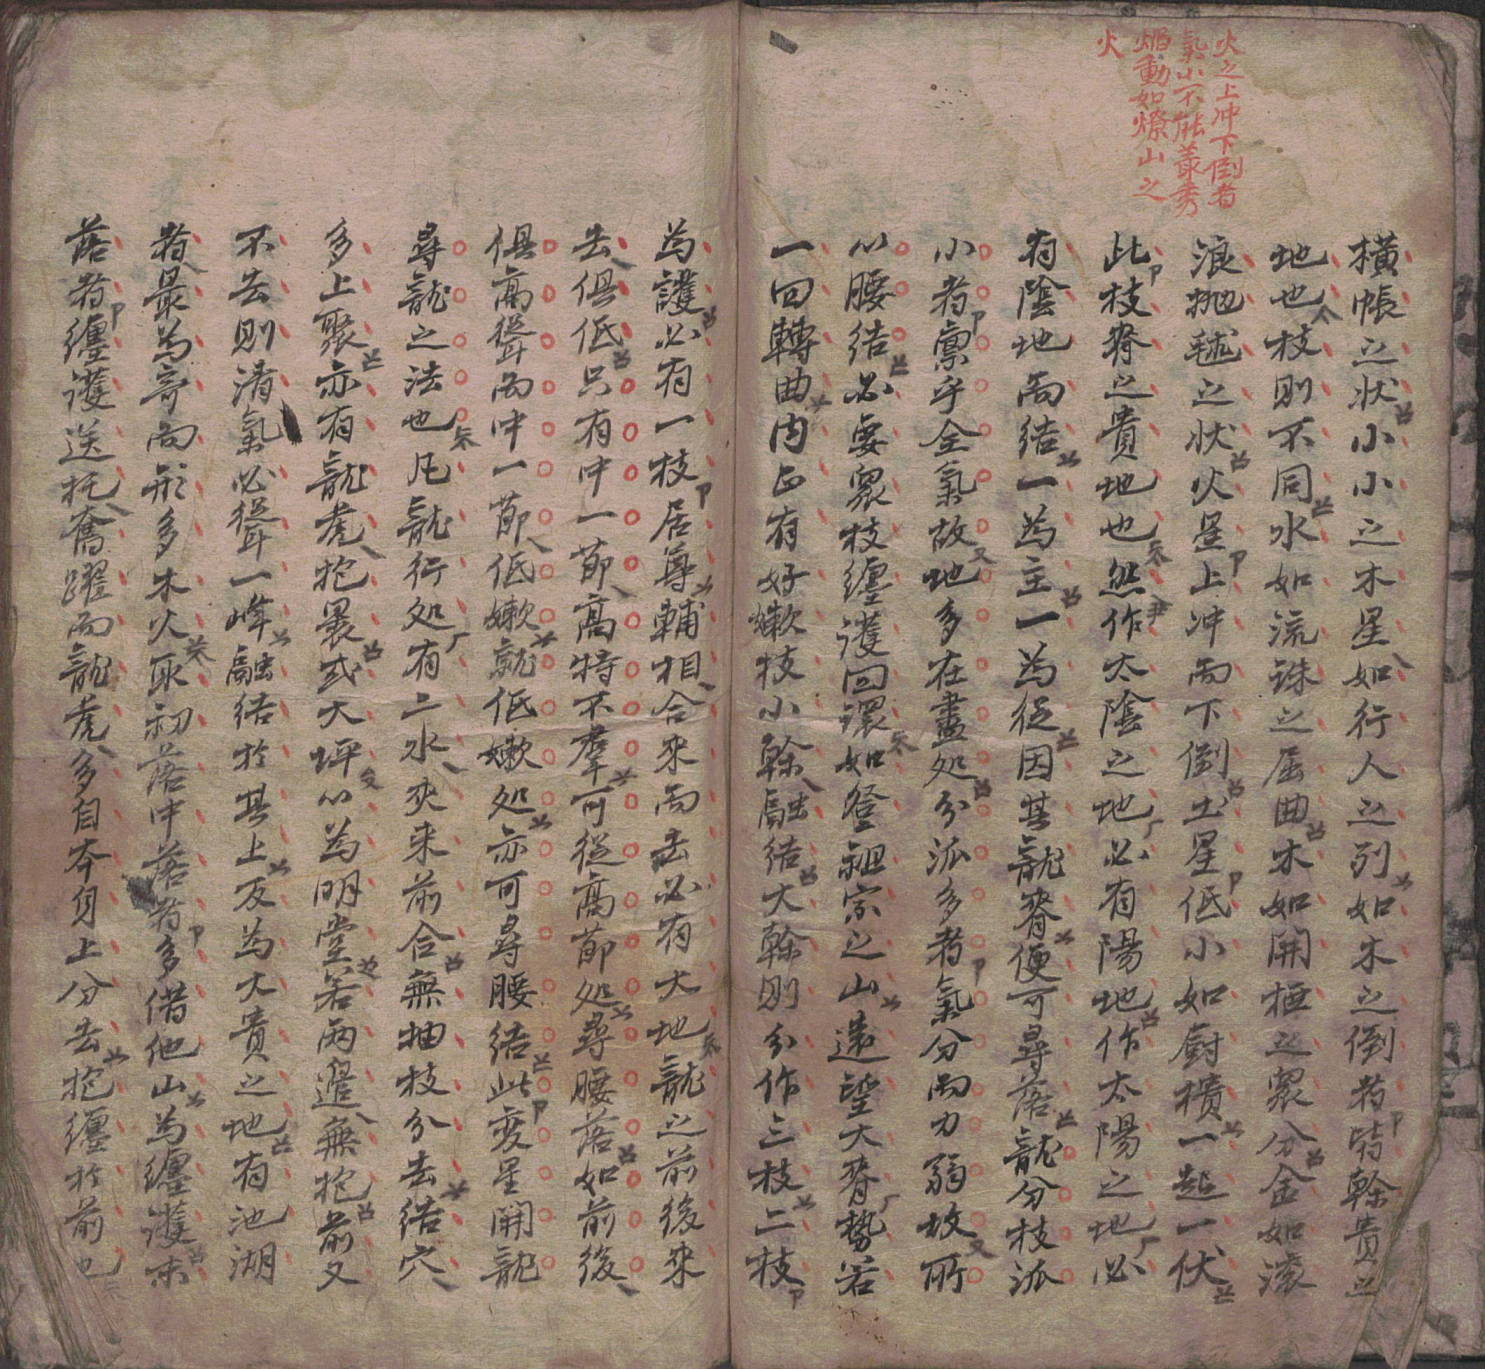 火之上冲下倒者
氣小不能叢秀
焰動如燎山之
火
橫帳之状小小之木星如行人之列如木之倒者皆幹貴之
地也枝則不同水如流珠之屈曲木如開極之裊分金如滚
浪抛毬之状火星上冲而下倒土星低小如廚横一起一伏
此枝脊之貴地也然作太陰之地必有陽地作太陽之地必
有陰地而结一為主一為從因其龍脊便可尋落龍分枝派
小者禀乎全氣故地多在盡処分派多者氣分而力弱故所
以腰结必要裊枝纏護回環如登祖宗之山遠望大脊勢若
一回轉曲内正有好嫩枝小幹融结大幹則分作三枝二枝
為護必有一枝居尊輔相合来而去必有大地龍之前後来
去俱低只有中一節高特不羣可從高節処尋腰落如前後
俱高聳而中一節低嫩就低嫩処亦可尋腰结此变星開龍
尋龍之法也凡龍行処有二水夾来前合無抽枝分去结穴
多上聚亦有龍虎抱裹或大坪以為明堂若两邉無抱前又
不去則清氣必聳一峰融结於其上反為大貴之地有池湖
者最為奇而形多木火取初落中落者多借他山為纏護末
落者纏護送托奮躍而龍虎多自本身上分去抱纏於前也